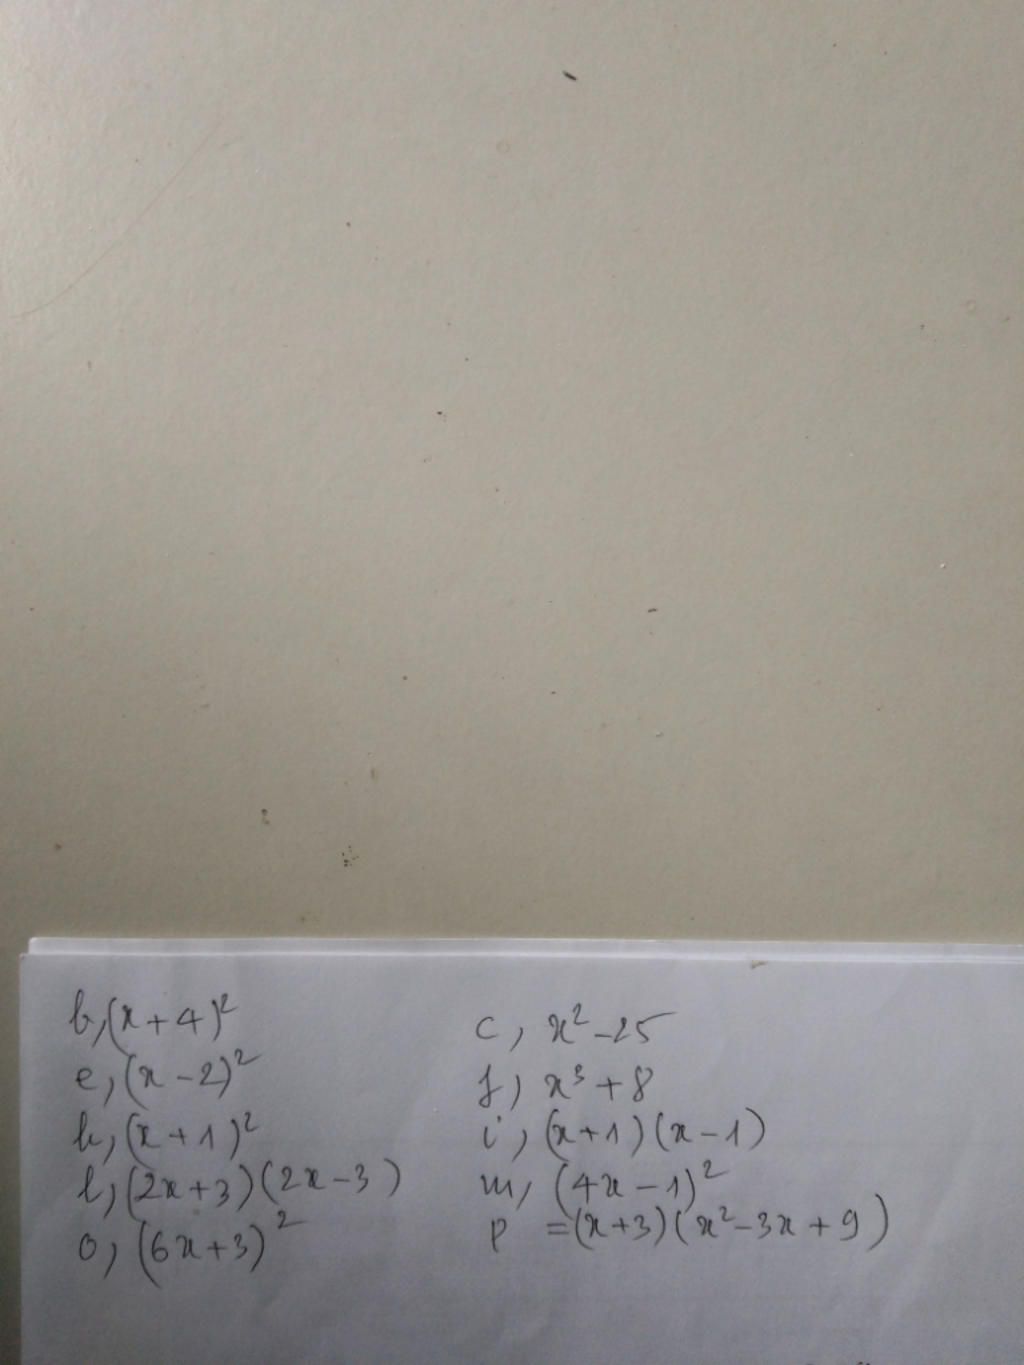 b, (x+4)²
c, x²-25
e, (x-2)²
f, x³+8
h, (x+1)²
i, (x+1)(x-1)
l, (2x+3)(2x-3)
m, (4x-1)²
o, (6x+3)²
p =(x+3)(x²-3x+9)